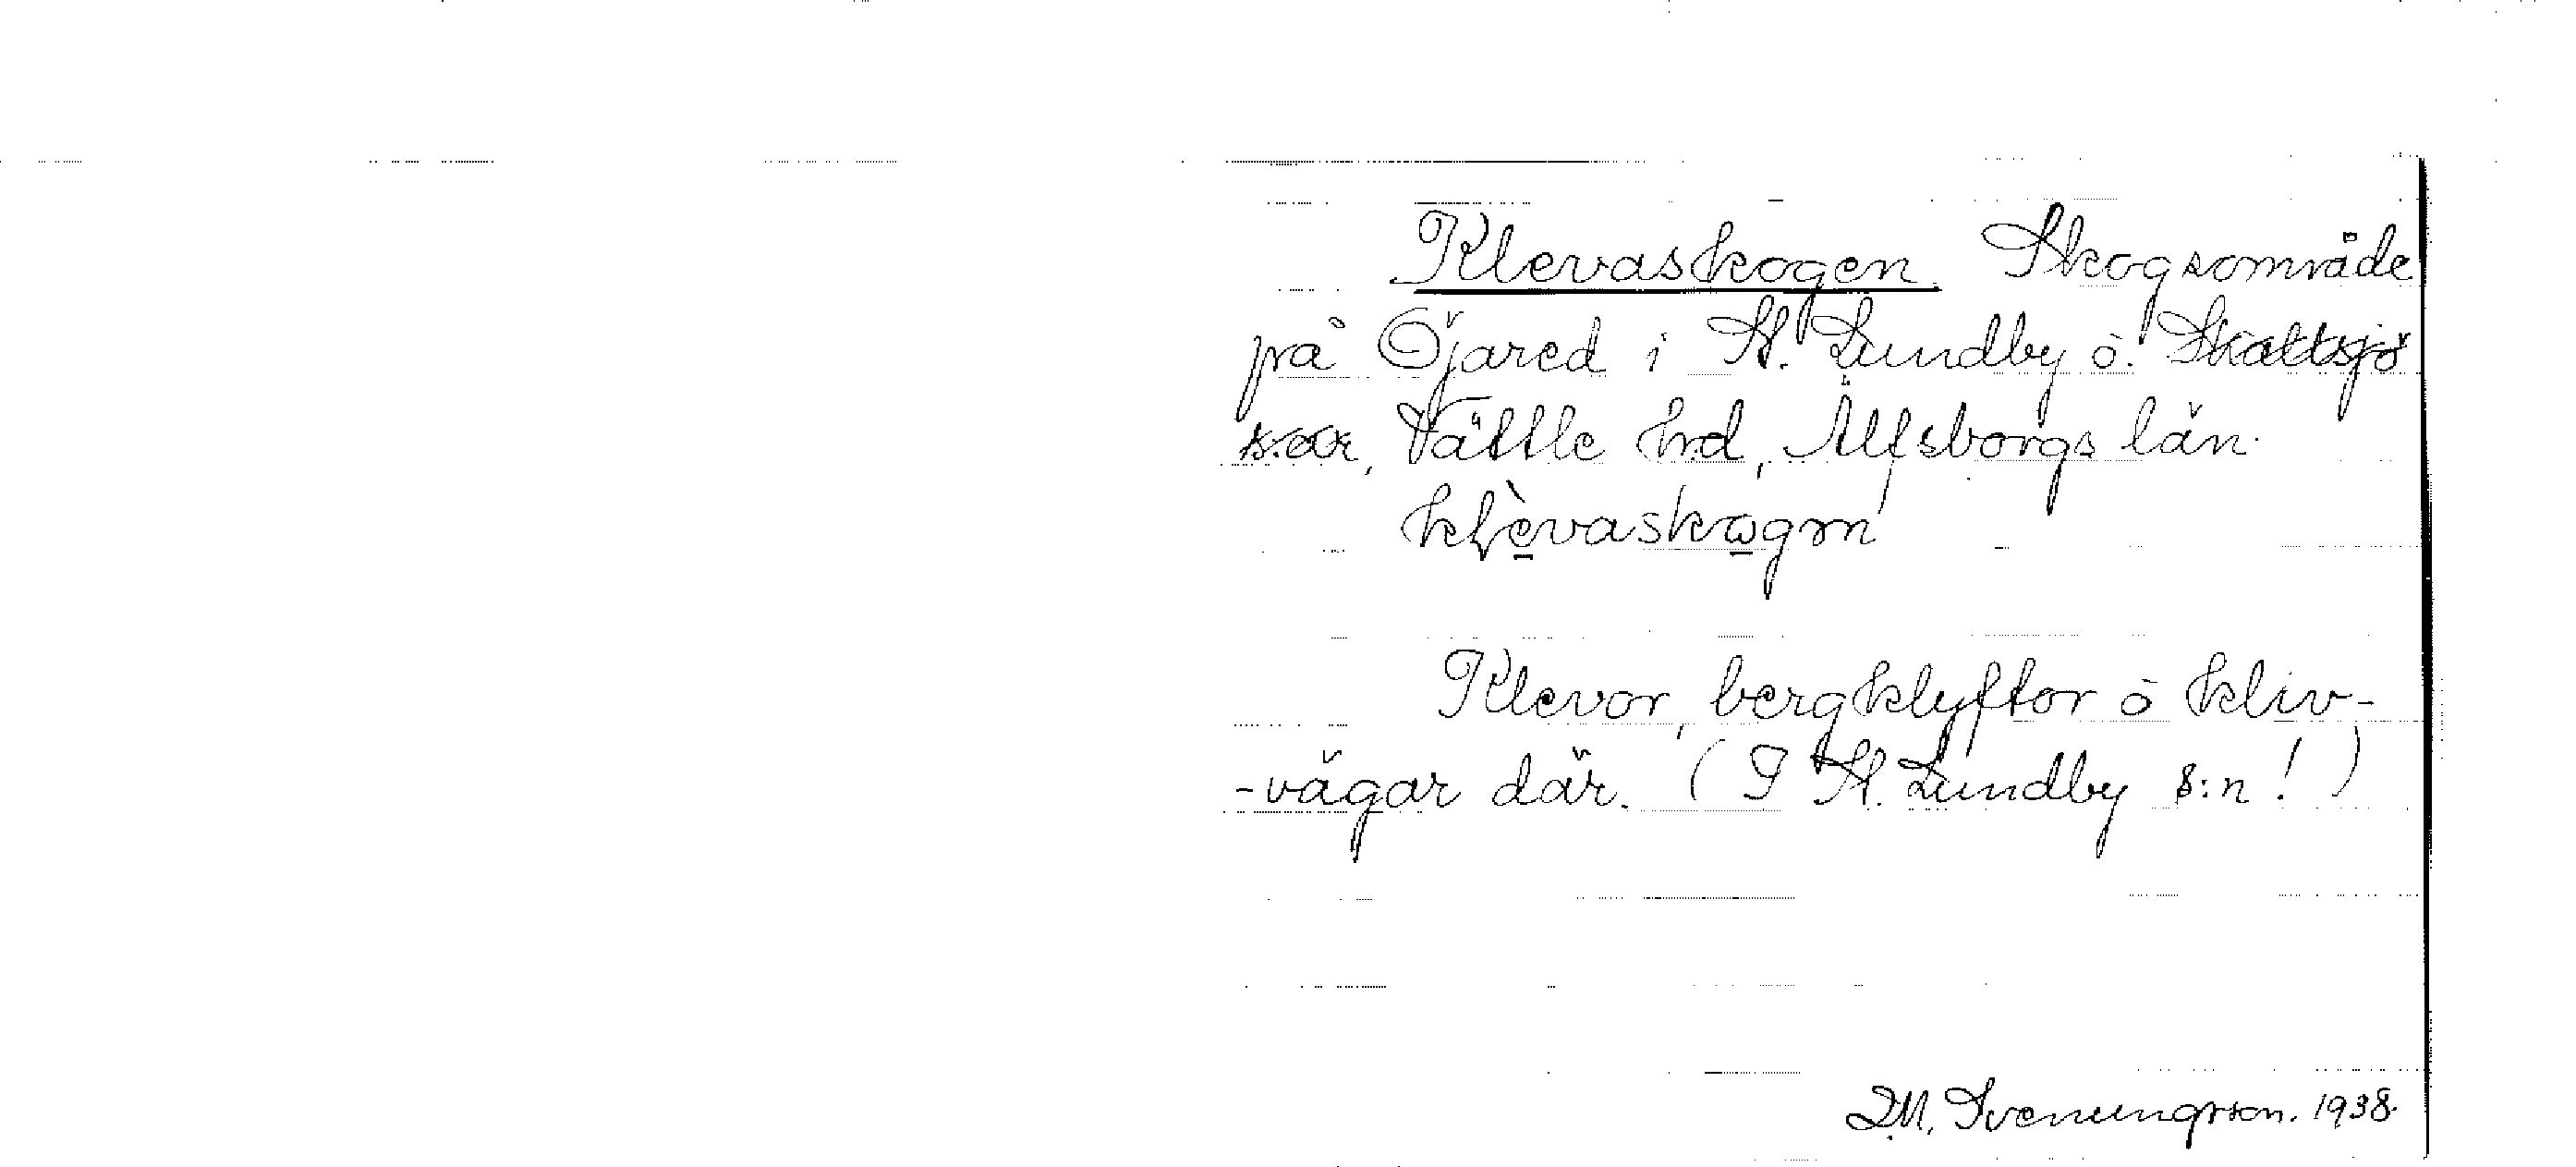 Klevaskogen. Skogsområde
på Öjared i St. Lundby ö. Skattsjö
s:ar, Vättle hrd, Älfsborgs län.
klèvaskωgm
Klevor, bergklyftor o kliv-
-vägar där. (I St. Lundby s:n!)
D.M. Svenungsson. 1938.